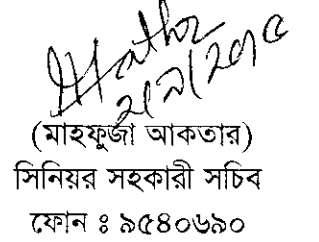 ২১/৯/২০১৫
(মাহফুজা আকতার)
সিনিয়র সহকারী সচিব
ফোন ঃ ৯৫৪০৬৯০